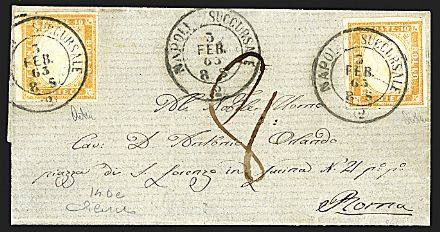 NAPOLI SUCCURSALE
3
FEB.
63
8 S
2
NAPOLI SUCCURSALE
3
FEB.
63
8 S
2
NAPOLI SUCCURSALE
3
FEB.
63
8 S
2
8
Cav: D. Antonio Orlando
piazza di S. Lorenzo in Lucina N. 21 p.º p.º
Roma